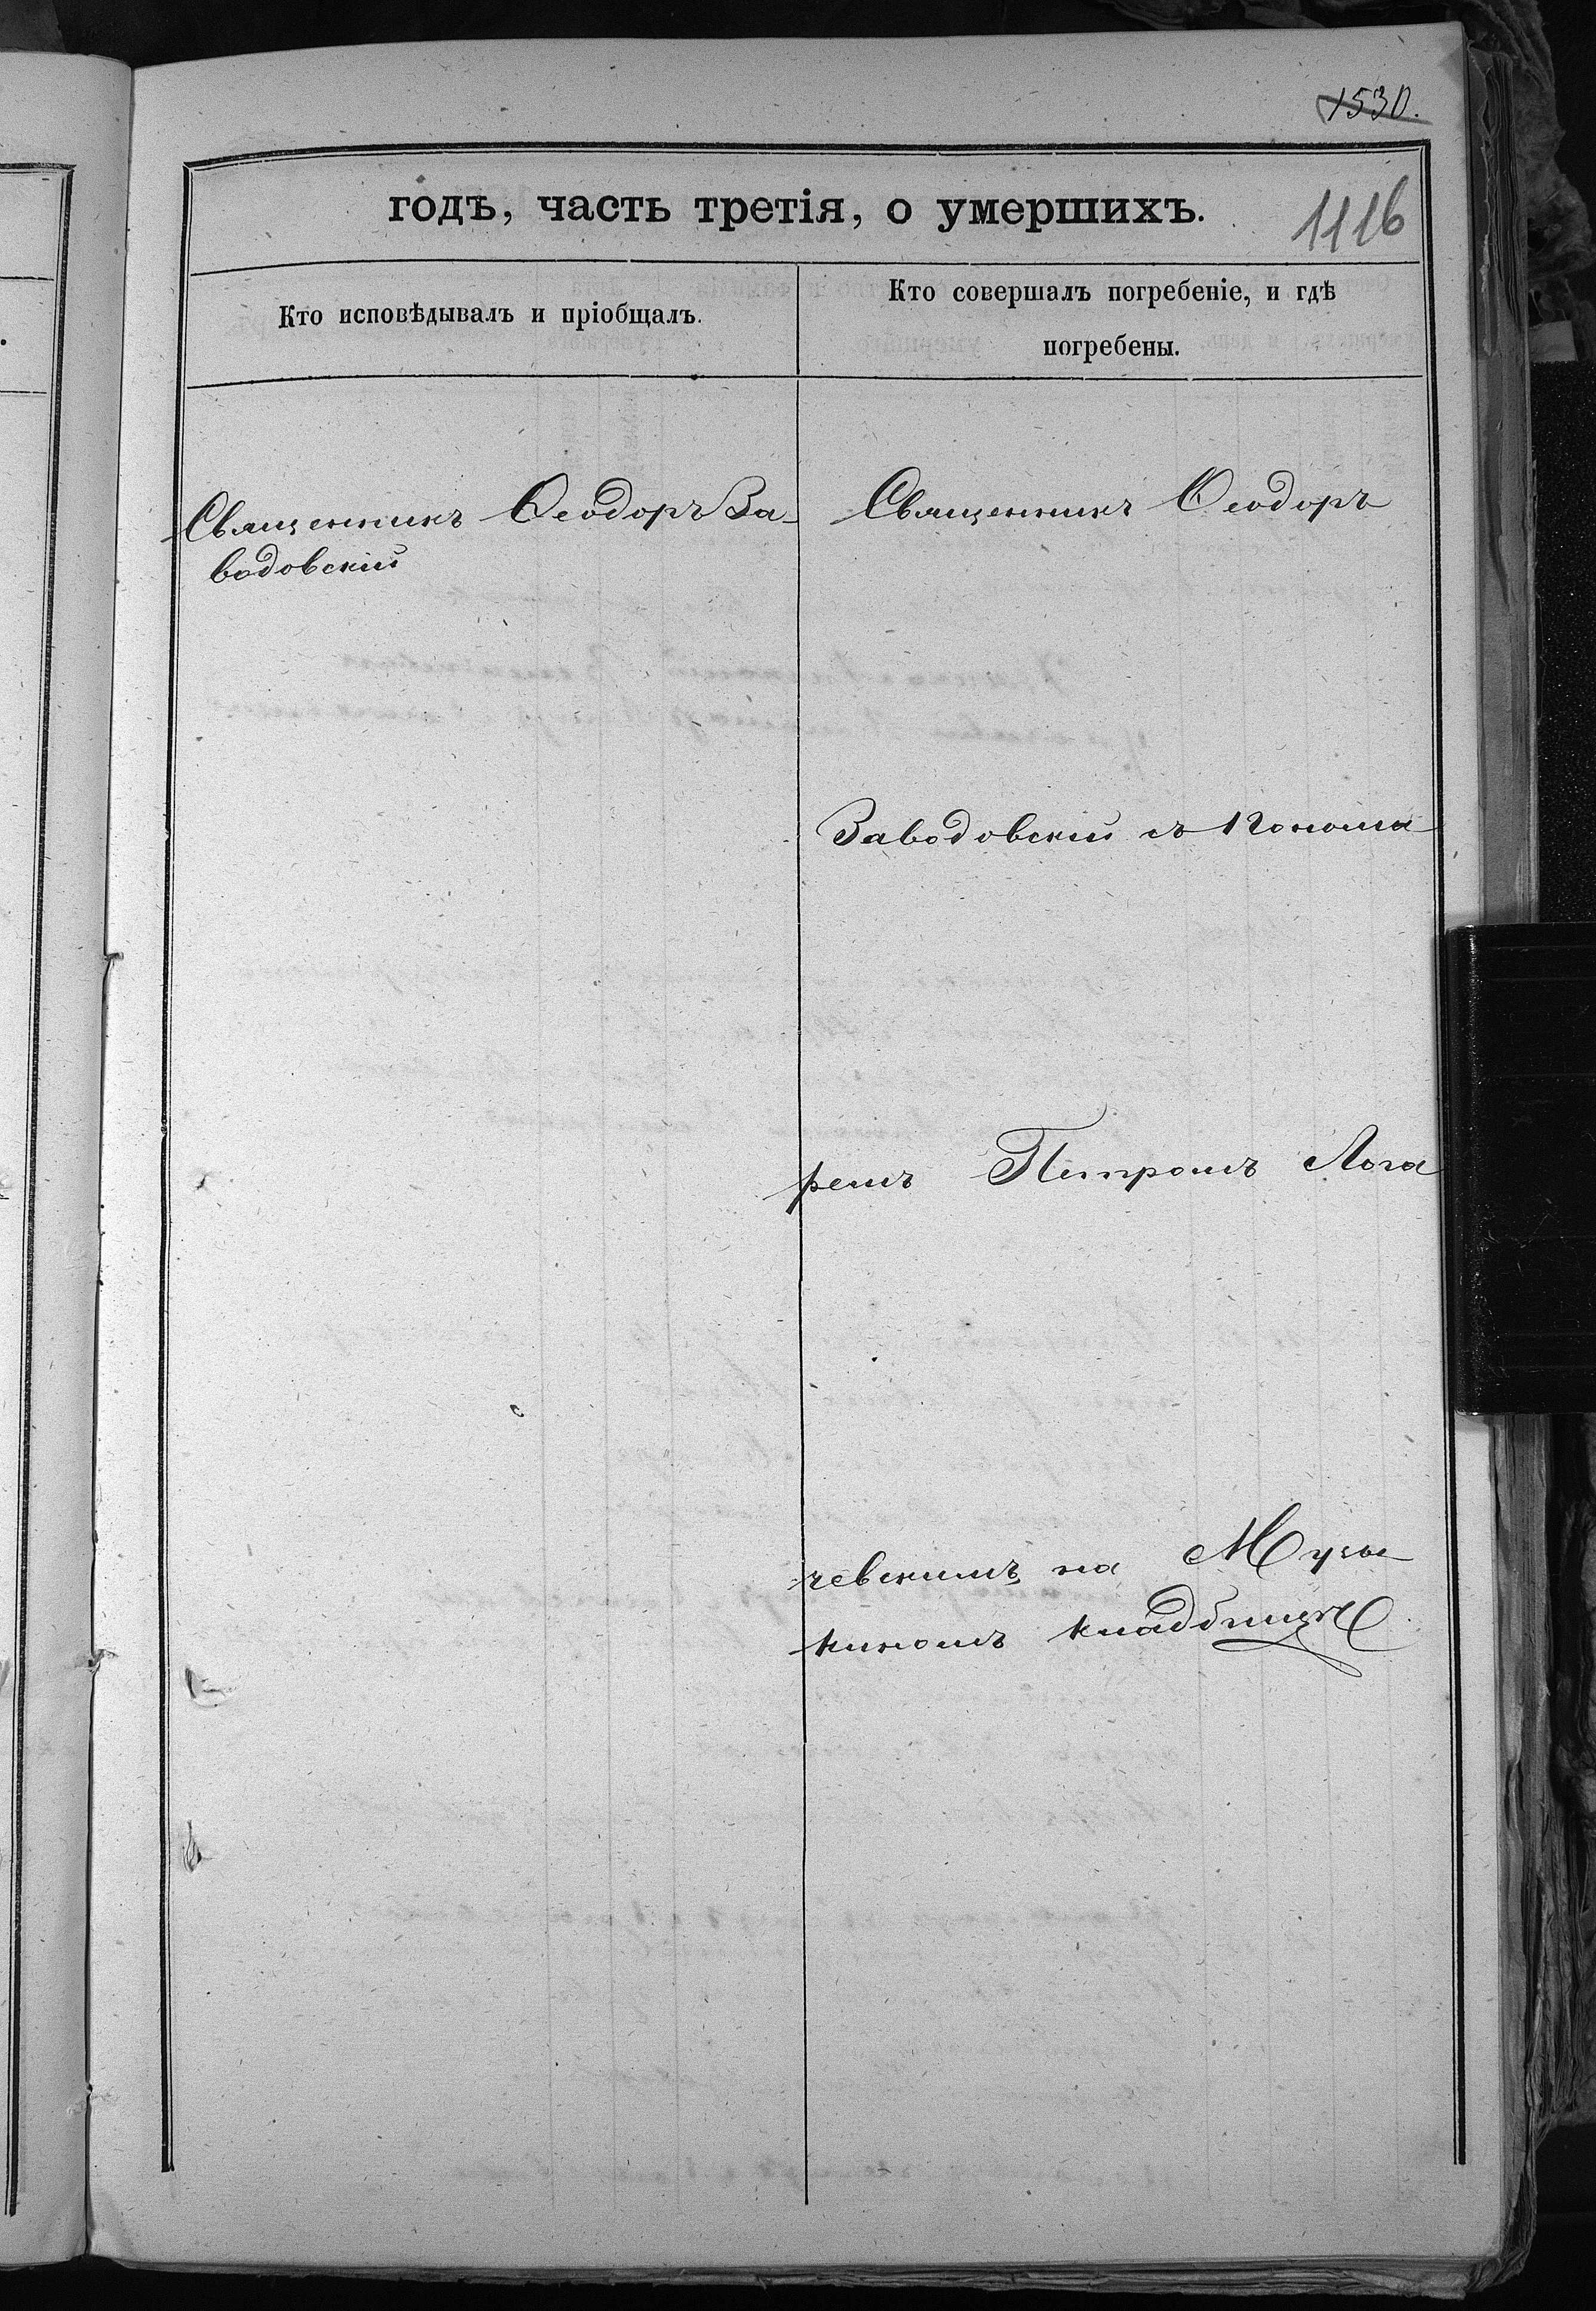 1530.
годъ, часть третія, о умершихъ.
1116
Кто исповѣдывалъ и пріобщалъ.
Кто совершалъ погребеніе, и гдѣ
погребены.
Священникъ Ѳеодоръ За-
водовскій
Священникъ Ѳеодоръ
Заводовскій съ Понома
ремъ Петромъ Лога
чевскимъ на Музы
киномъ кладбищѣ